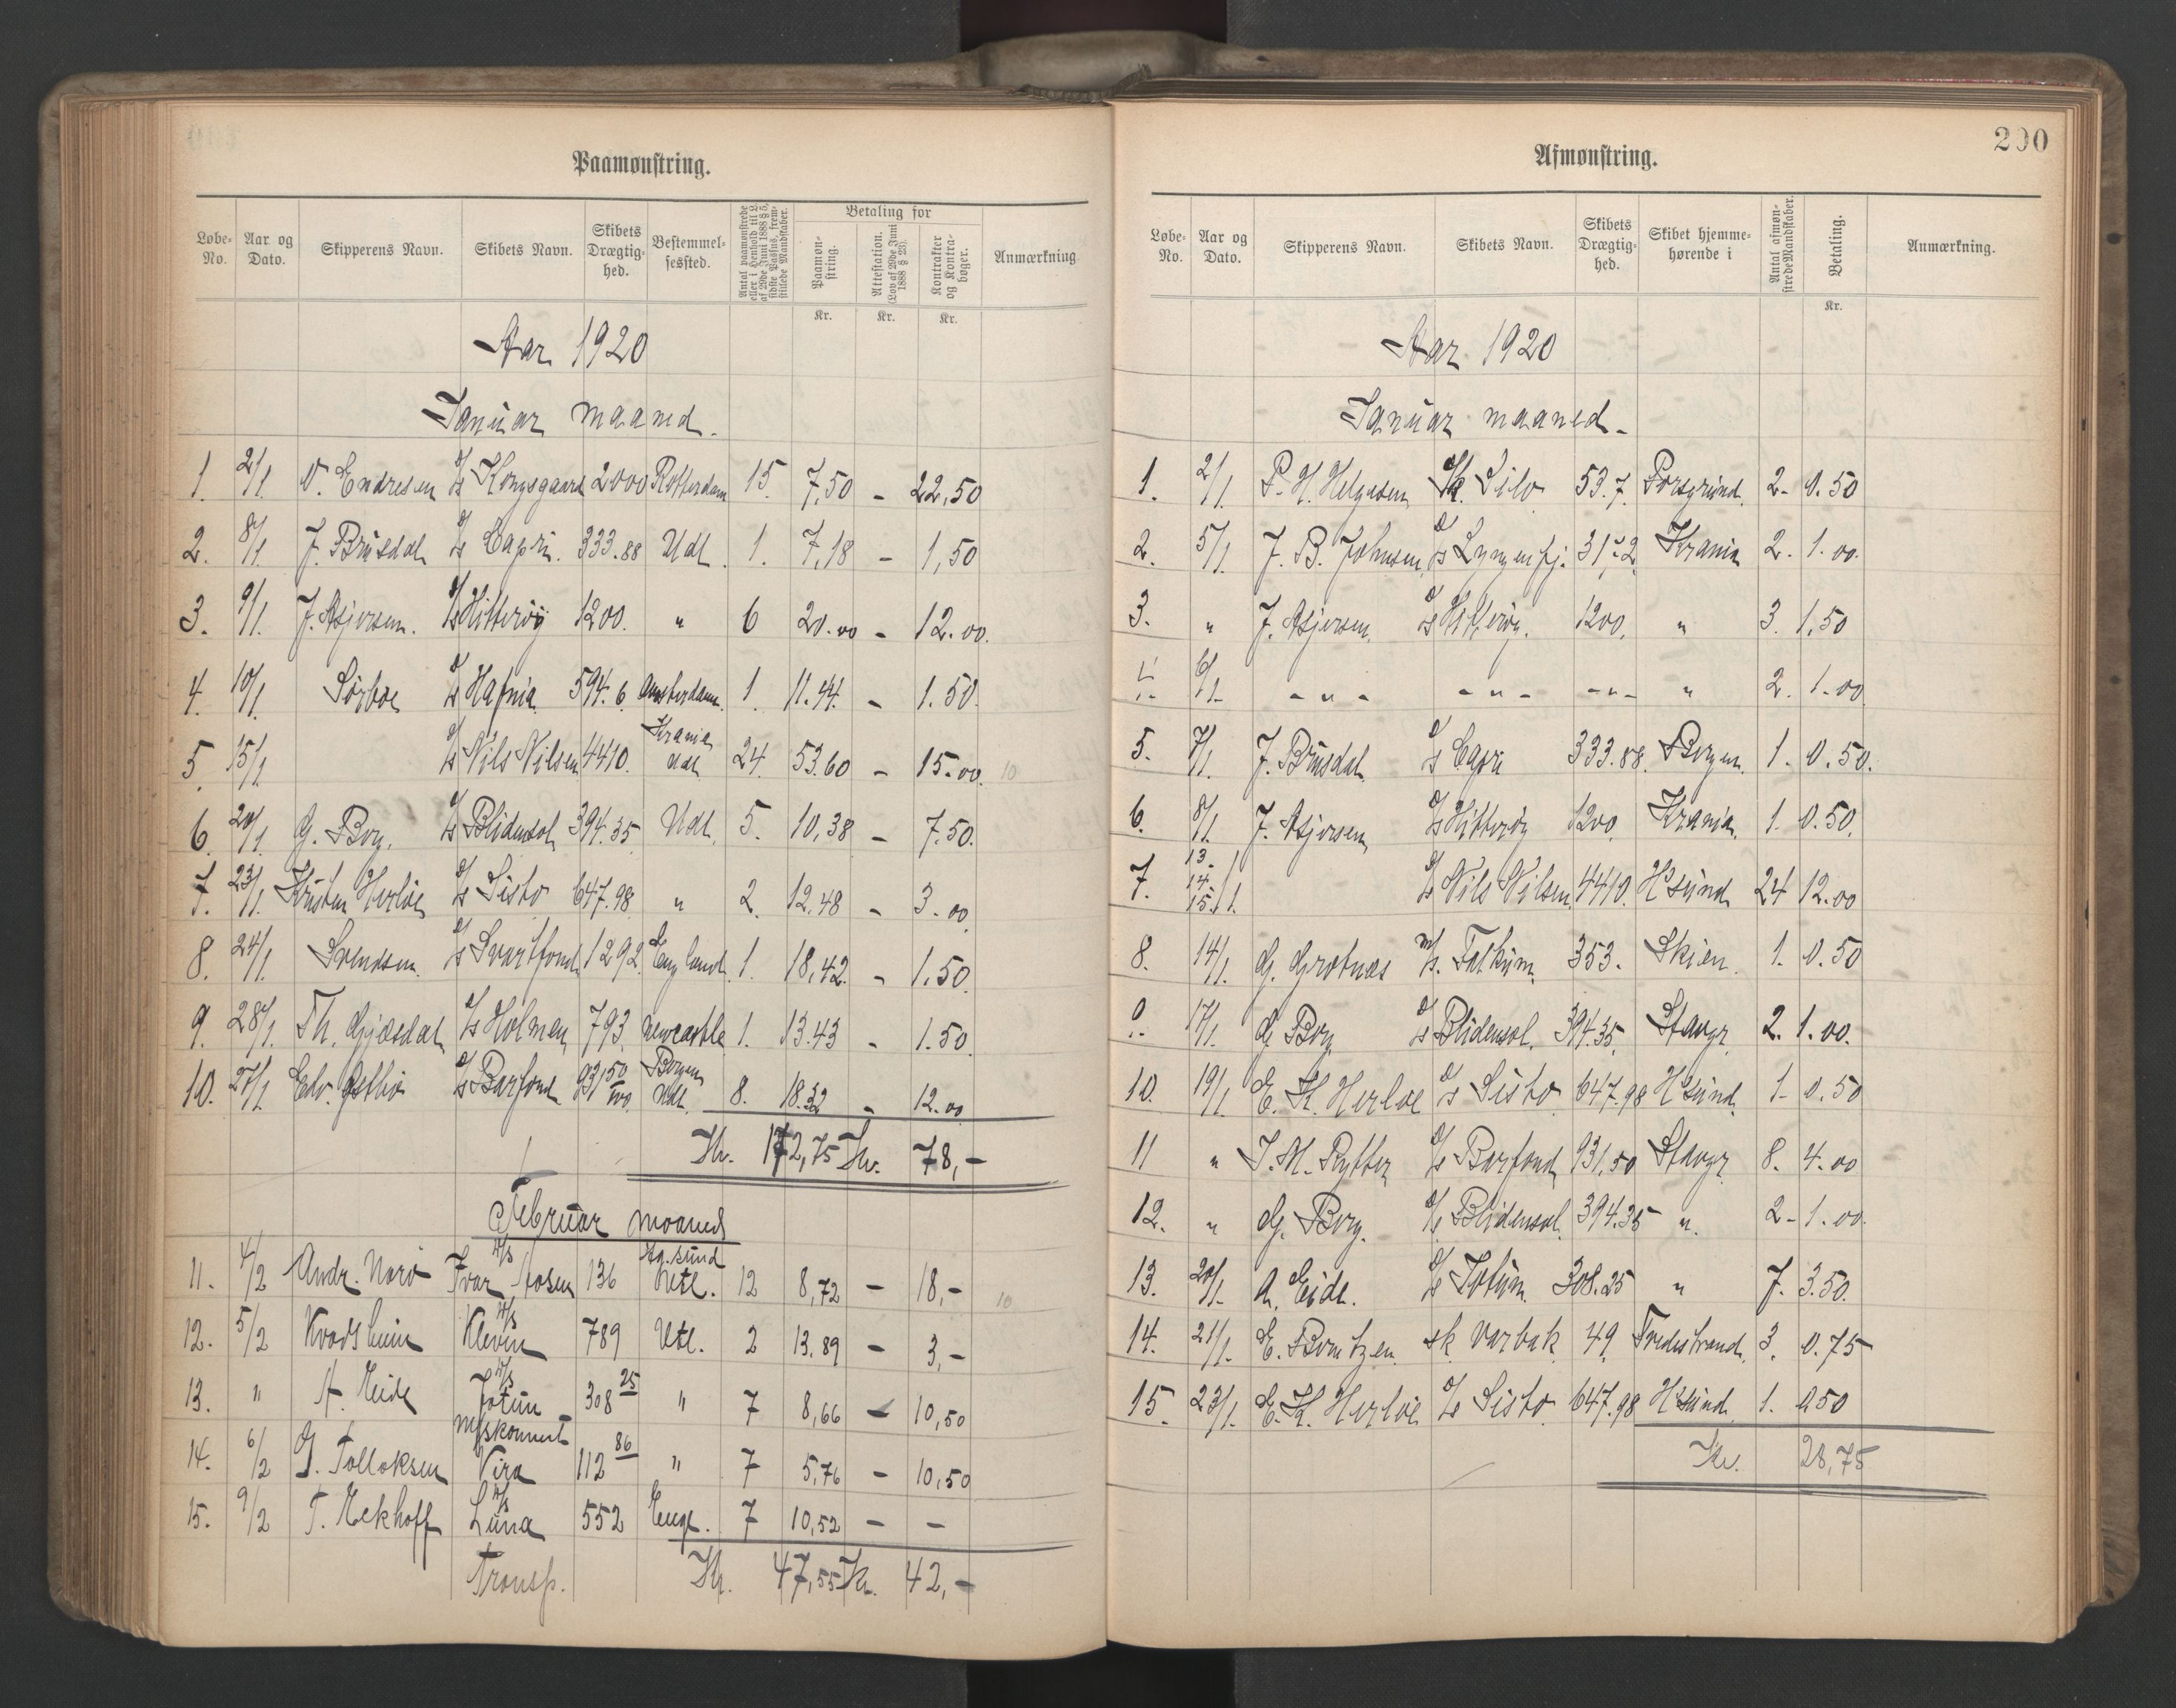 Paamønstring.
Løbe-No. Aar og Dato. Skipperens Navn. Skibets Navn. Skibets Drægtig-hed. Bestemmel-sessted. Antal paamønstrede eller i Henhold til L. af 29de Juni 1888 § 5, sidste Passus, frem-stillede Mandskaber. Betaling for Paamøn-string. Attestation. (Lov af 29de Juni 1888 § 23). Kontrakter og Kontra-bøger. Anmærkning
Kr. Kr. Kr.
Aar 1920
Januar maaned.
1. 2/1 O. Endresen D/s Kongsgaard 2000 Rotterdam 15. 7,50 - 22,50
2. 8/1 J. Brusdal D/s Capri. 333.88 Udl. 1. 7,18 - 1,50
3. 9/1. J. Asjersen. D/s Hitterøy 1200. " 6 20.00 - 12.00.
4. 10/1. Sørboe D/s Hafnia 594.6 Amsterdam. 1 11.44. - 1.50.
5. 15/1 D/s Nils Nilsen 4410. Krania Udl. 24. 53.60 - 15.00. 10
6. 20/1. G. Borg. D/s Blidensol 394.35 Udl. 5. 10,38 - 7.50.
7. 23/1. Kristen Herløe D/s Sisto 647.98 " 2. 12.48 - 3.00
8. 24/1. Svendsen. D/s Svartfond 1292 England. 1. 18,42. - 1.50.
9. 28/1. Th. Gjæsdal D/s Holmen 793. Newcastle 1. 13.43 - 1.50.
10. 27/1. Edv. Østbø D/s Barfond 931 50/100 Bergen Udl. 8. 18.32 - 12.00
Kr. 172,75 Kr. 78,-
Februar maaned
11. 4/2 Andr. Norø M/s Ivar Aasen 136 Hg.sund Utl. 12 8,72 - 18,- 10
12. 5/2 Kvadsheim D/s Kleven 789 Utl. 2 13.89 - 3,-
13. " A. Eide D/s Jotun 308 25 " 7 8,66 - 10,50
14. 6/2 G. Tolloksen M/skonnert Vira 112 86 " 7 5,76 - 10,50
15. 9/2 T. Eckhoff D/s Luna 552 Engl. 7 10,52 - -
Transp. Kr. 47,55 Kr. 42,-
200
Afmønstring.
Løbe-No. Aar og Dato. Skipperens Navn. Skibets Navn. Skibets Drægtig-hed. Skibet hjemme-hørende i Antal afmøn-strede Mandskaber. Betaling. Anmærkning.
Kr.
Aar 1920
Januar maaned.
1. 2/1. P. H. Helgesen Sk. Silo 53.7. Porsgrund. 2- 0.50
2. 5/1. J. B. Johnsen. D/s Lyngenfj. Krania 2. 1.00.
3. " J. Asjersen. D/s Hitterøy. 1200. " 3. 1.50
4. 6/1. -"- -"- -"- " 2. 1.00
5. 7/1. J. Brusdal. D/s Capri 333.88. Bergen. 1. 0.50.
6. 8/1. J. Asjersen D/s Hitterøy 1200. Krania. 1. 0.50.
7. 13. 14. 15./1. D/s Nils Nilsen. 4410. H'sund 24 12.00
8. 14/1. G. Grøtnæs M/s. Falkum. 353. Skien. 1. 0.50
9. 17/1. G. Borg D/s Blidensol. 394.35. Stavgr. 2. 1.00.
10. 19/1. E. K. Herløe D/s Sisto. 647.98 H'sund. 1- 0.50
11 " J. M. Rytter D/s Barfond 931.50 Stavgr. 8. 4.00
12. " G. Borg. D/s Blidensol. 394.35 ". 2- 1.00.
13. 20/1. A. Eide. D/s Jotun. 308.25 " 7. 3.50.
14. 21/1. E. Berntzen sk. Varbak 49. Tvedestrand. 3. 0.75
15. 23/1. E. K. Herløe D/s Sisto. 647.98 H'sund. 1. 0.50
Kr. 28,75